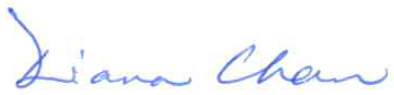 Diana Chan